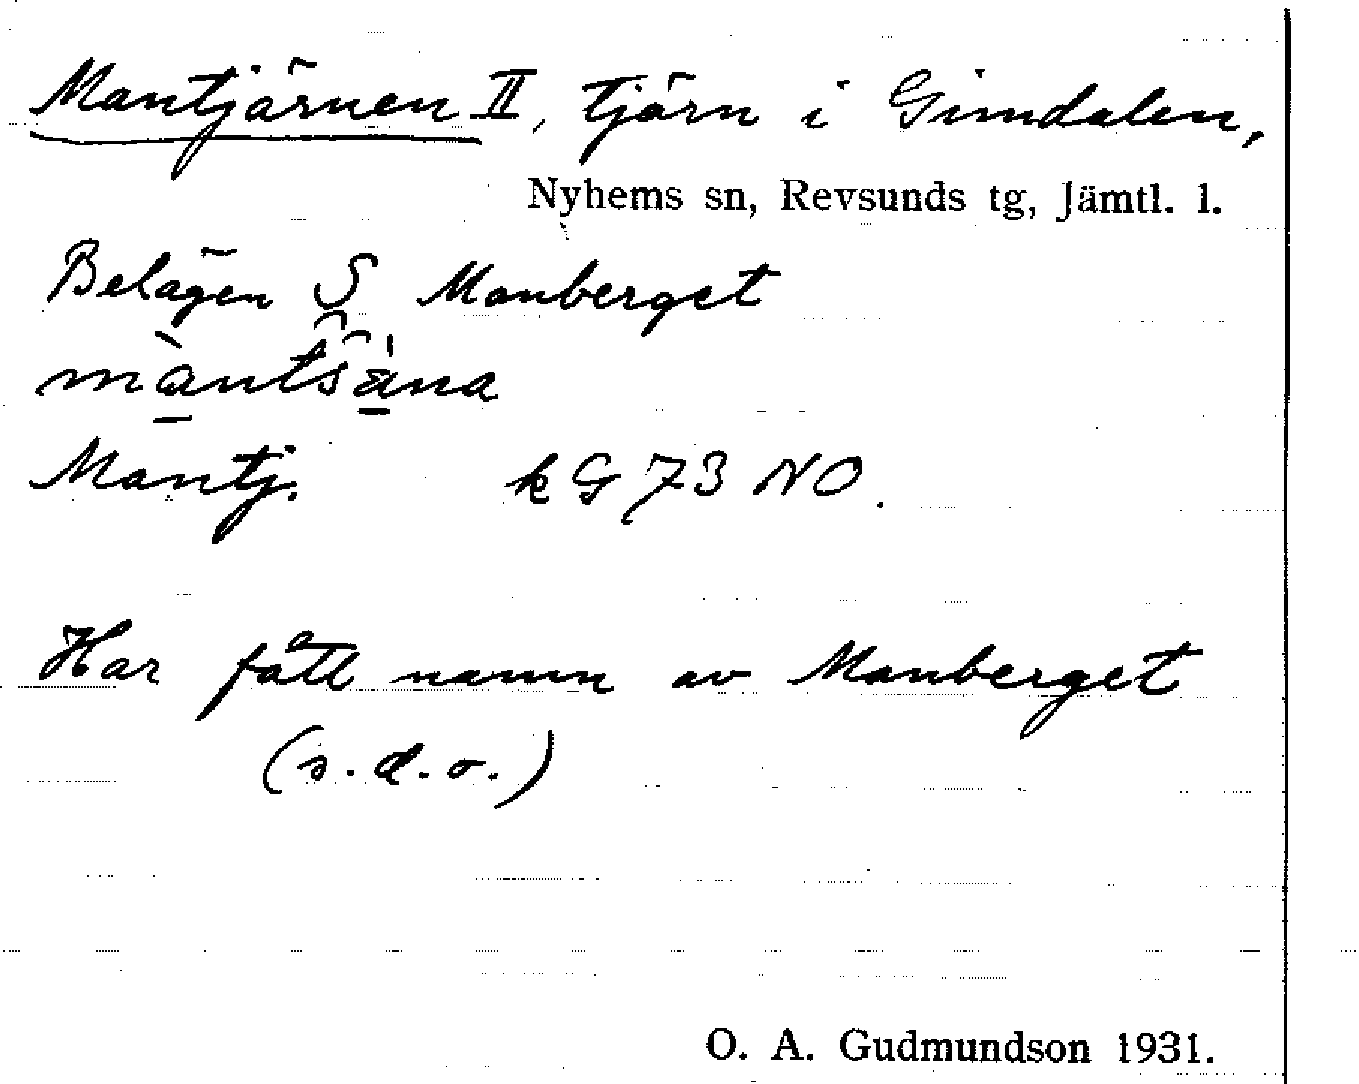 Mantjärnen II, tjärn i Gimdalen,
Nyhems sn, Revsunds tg, Jämtl. l.
Belägen S Manberget
Mantj. k G 73 NO.
Har fått namn av Manberget
(s. d. o.)
O. A. Gudmundson 1931.